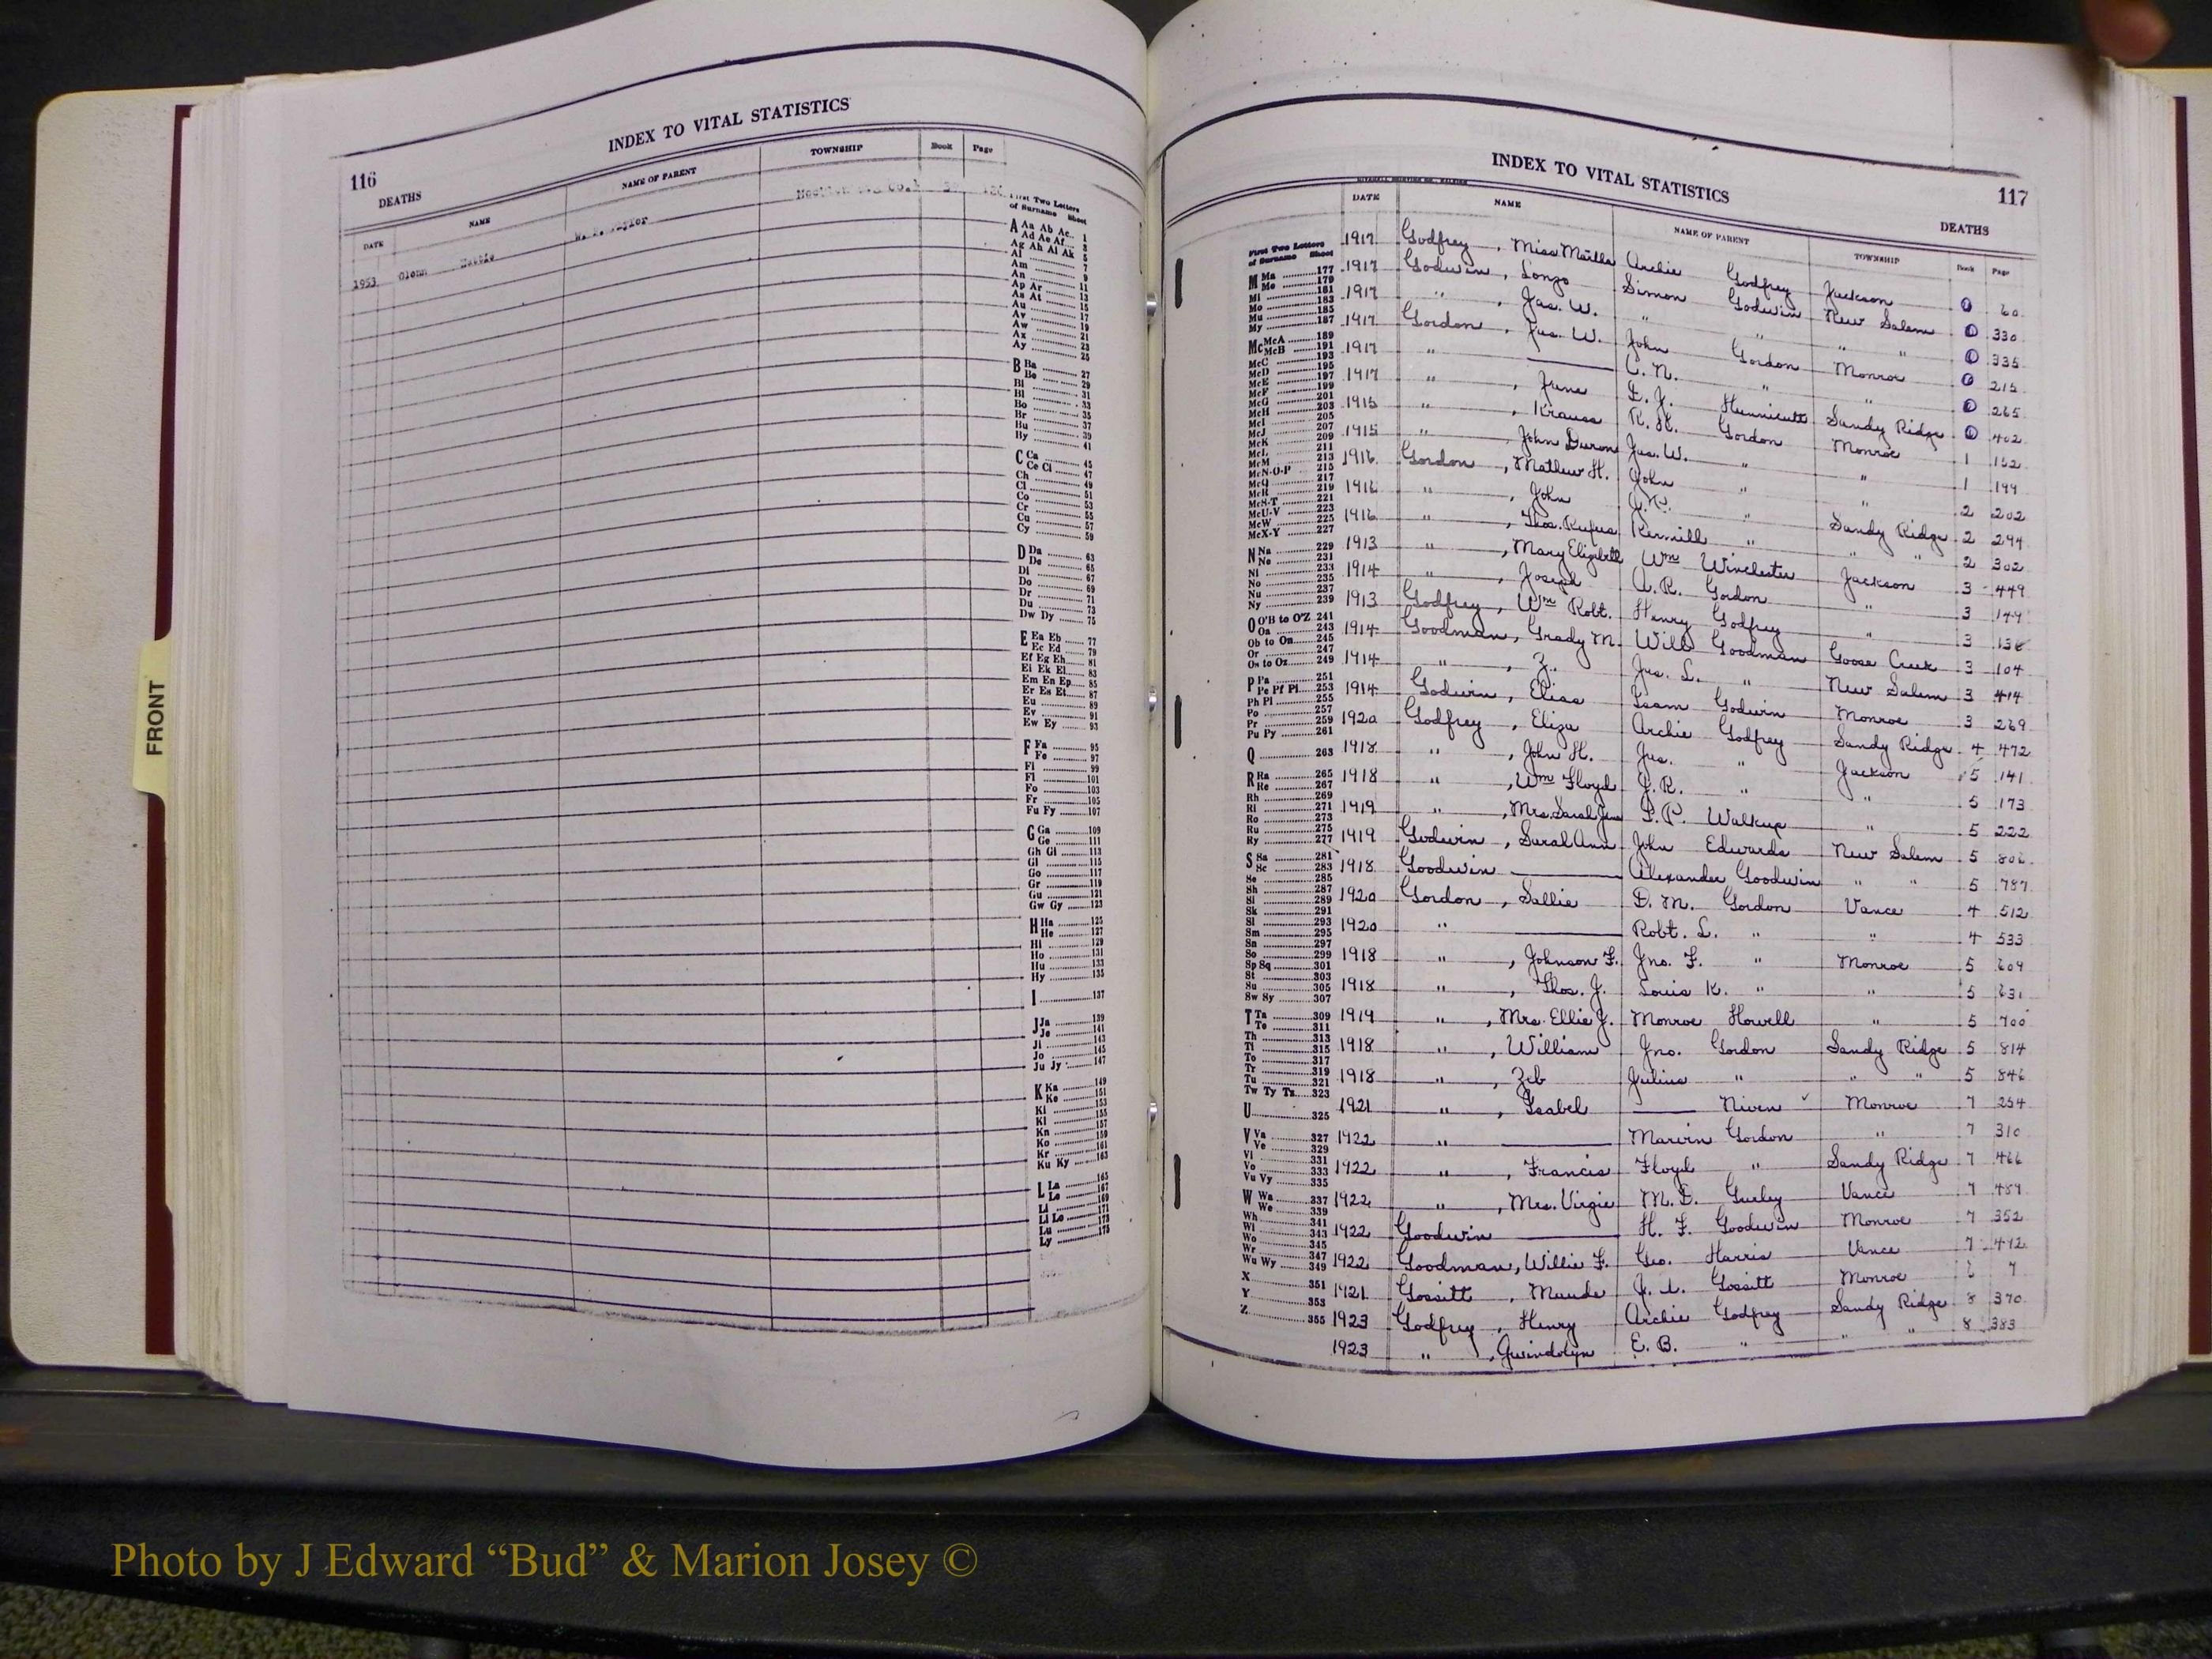 FRONT
INDEX TO VITAL STATISTICS
116
DEATHS
DATE NAME NAME OF PARENT TOWNSHIP Book Page
1953 Glenn Hattie W. P. Taylor
First Two Letters
of Surname Sheet
A Aa Ab Ac 1
Ad Ae Af 3
Ag Ah Ai Ak 5
Al 7
Am 9
An 11
Ap Ar 13
As At 15
Au 17
Av 19
Aw 21
Ax 23
Ay 25
B Ba 27
Be 29
Bi 31
Bl 33
Bo 35
Br 37
Bu 39
By 41
C Ca 45
Ce Ci 47
Ch 49
Cl 51
Co 53
Cr 55
Cu 57
Cy 59
D Da 63
De 65
Di 67
Do 69
Dr 71
Du 73
Dw Dy 75
E Ea Eb 77
Ec Ed 79
Ef Eg Eh 81
Ei Ek El 83
Em En Ep 85
Er Es Et 87
Eu 89
Ev 91
Ew Ey 93
F Fa 95
Fe 97
Fi 99
Fl 101
Fo 103
Fr 105
Fu Fy 107
G Ga 109
Ge 111
Gh Gi 113
Gl 115
Go 117
Gr 119
Gu 121
Gw Gy 123
H Ha 125
He 127
Hi 129
Ho 131
Hu 133
Hy 135
I 137
J Ja 139
Je 141
Ji 143
Jo 145
Ju Jy 147
K Ka 149
Ke 151
Ki 153
Kl 155
Kn 157
Ko 159
Kr 161
Ku Ky 163
L La 165
Le 167
Li 169
Ll Lo 171
Lu 173
Ly 175
INDEX TO VITAL STATISTICS
117
DEATHS
DATE NAME NAME OF PARENT TOWNSHIP Book Page
First Two Letters
of Surname Sheet
M Ma 177
Me 179
Mi 181
Mo 183
Mu 185
My 187
Mc McA 189
McB 191
McC 193
McD 195
McE 197
McF 199
McG 201
McH 203
McI 205
McJ 207
McK 209
McL 211
McM 213
McN-O-P 215
McQ 217
McR 219
McS-T 221
McU-V 223
McW 225
McX-Y 227
N Na 229
Ne 231
Ni 233
No 235
Nu 237
Ny 239
O O'B to O'Z 241
Oa 243
Ob to On 245
Or 247
Os to Oz 249
P Pa 251
Pe Pf Pi 253
Ph Pl 255
Po 257
Pr 259
Pu Py 261
Q 263
R Ra 265
Re 267
Rh 269
Ri 271
Ro 273
Ru 275
Ry 277
S Sa 281
Sc 283
Se 285
Sh 287
Si 289
Sk 291
Sl 293
Sm 295
Sn 297
So 299
Sp Sq 301
St 303
Su 305
Sw Sy 307
T Ta 309
Te 311
Th 313
Ti 315
To 317
Tr 319
Tu 321
Tw Ty Tz 323
U 325
V Va 327
Ve 329
Vi 331
Vo 333
Vu Vy 335
W Wa 337
We 339
Wh 341
Wi 343
Wo 345
Wr 347
Wu Wy 349
X 351
Y 353
Z 355
1917 Godfrey, Miss Archie Godfrey Jackson 0 60
1917 Godwin, Lonzo Simon Godwin New Salem 0 330
1917 " , Jas. W. " " " " 0 335
1917 Gordon, Jas. W. John Gordon Monroe 0 215
1917 " — C. N. " " 0 265
1917 " , June E. J. Hunnicutt Sandy Ridge 0 402
1915 " , Krauss R. K. Gordon Monroe 1 152
1915 " , John Duron Jas. W. " " 1 199
1916 Gordon, Mathew H. John " " 2 202
1916 " , John " Sandy Ridge 2 294
1916 " , Thos. Rufus " " " 2 302
1913 " , Mary Elizabeth Wm Winchester Jackson 3 449
1914 " , Joseph A. R. Gordon " 3 149
1913 Godfrey, Wm Robt. Henry Godfrey " 3 138
1914 Goodman, Grady M. Will Goodman Goose Creek 3 104
1914 " , Z. Jas. L. " New Salem 3 414
1914 Godwin, Elias Isam Godwin Monroe 3 269
1920 Godfrey, Eliza Archie Godfrey Sandy Ridge 4 472
1918 " , John H. Jas. " Jackson 5 141
1918 " , Wm Floyd J. R. " " 5 173
1919 " , Mrs. Sarah Jane P. P. Walkup " 5 222
1919 Godwin, Sarah Ann John Edwards New Salem 5 806
1918 Goodwin — Alexander Goodwin " " 5 787
1920 Gordon, Sallie D. M. Gordon Vance 4 512
1920 " — Robt. L. " " 4 533
1918 " , Johnson F. Jno. F. " Monroe 5 609
1918 " , Thos. J. Louis K. " " 5 631
1919 " , Mrs. Ellie J. Monroe Howell " 5 700
1918 " , William Jno. Gordon Sandy Ridge 5 814
1918 " , Zeb Julius " " " 5 846
1921 " , Isabel — Niven Monroe 7 254
1922 " — Marvin Gordon " 7 310
1922 " , Francis Floyd " Sandy Ridge 7 466
1922 " , Mrs. Virgie M. D. Gurley Vance 7 489
1922 Goodwin — H. F. Goodwin Monroe 7 352
1922 Goodman, Willie F. Geo. Harris Vance 7 412
1921 Gossett, Maude Gossett Monroe 6 7
1923 Godfrey, Henry Archie Godfrey Sandy Ridge 8 370
1923 " , Gwindolyn E. B. " " " 8 383
Photo by J Edward “Bud” & Marion Josey ©